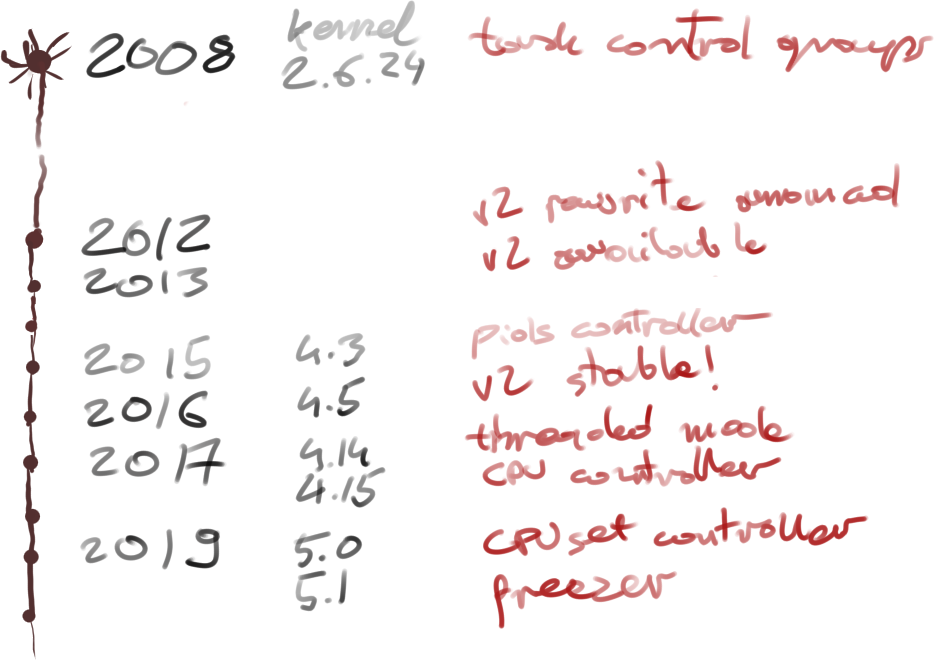 2008 kernel 2.6.24 task control groups
2012 v2 rewrite announced
2013 v2 available
2015 4.3 pids controller
2016 4.5 v2 stable!
2017 4.14 threaded mode
4.15 CPU controller
2019 5.0 CPUset controller
5.1 freezer